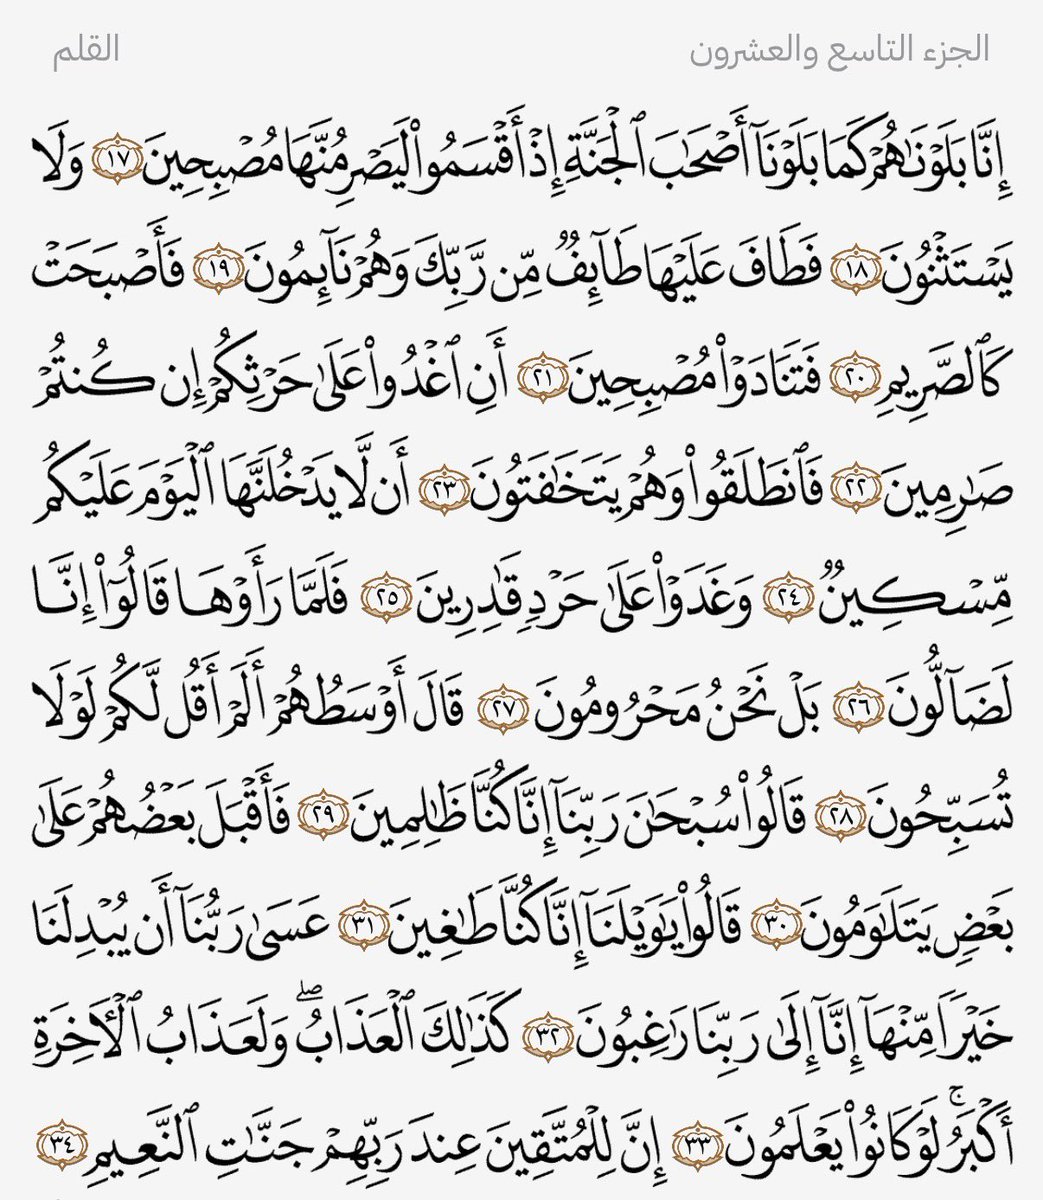 الجزء التاسع والعشرون القلم
إِنَّا بَلَوْنَٰهُمْ كَمَا بَلَوْنَآ أَصْحَٰبَ ٱلْجَنَّةِ إِذْ أَقْسَمُوا۟ لَيَصْرِمُنَّهَا مُصْبِحِينَ ١٧ وَلَا
يَسْتَثْنُونَ ١٨ فَطَافَ عَلَيْهَا طَآئِفٌ مِّن رَّبِّكَ وَهُمْ نَآئِمُونَ ١٩ فَأَصْبَحَتْ
كَٱلصَّرِيمِ ٢٠ فَتَنَادَوْا۟ مُصْبِحِينَ ٢١ أَنِ ٱغْدُوا۟ عَلَىٰ حَرْثِكُمْ إِن كُنتُمْ
صَٰرِمِينَ ٢٢ فَٱنطَلَقُوا۟ وَهُمْ يَتَخَٰفَتُونَ ٢٣ أَن لَّا يَدْخُلَنَّهَا ٱلْيَوْمَ عَلَيْكُم
مِّسْكِينٌ ٢٤ وَغَدَوْا۟ عَلَىٰ حَرْدٍ قَٰدِرِينَ ٢٥ فَلَمَّا رَأَوْهَا قَالُوٓا۟ إِنَّا
لَضَآلُّونَ ٢٦ بَلْ نَحْنُ مَحْرُومُونَ ٢٧ قَالَ أَوْسَطُهُمْ أَلَمْ أَقُل لَّكُمْ لَوْلَا
تُسَبِّحُونَ ٢٨ قَالُوا۟ سُبْحَٰنَ رَبِّنَآ إِنَّا كُنَّا ظَٰلِمِينَ ٢٩ فَأَقْبَلَ بَعْضُهُمْ عَلَىٰ
بَعْضٍ يَتَلَٰوَمُونَ ٣٠ قَالُوا۟ يَٰوَيْلَنَآ إِنَّا كُنَّا طَٰغِينَ ٣١ عَسَىٰ رَبُّنَآ أَن يُبْدِلَنَا
خَيْرًا مِّنْهَآ إِنَّآ إِلَىٰ رَبِّنَا رَٰغِبُونَ ٣٢ كَذَٰلِكَ ٱلْعَذَابُ ۖ وَلَعَذَابُ ٱلْءَاخِرَةِ
أَكْبَرُ ۚ لَوْ كَانُوا۟ يَعْلَمُونَ ٣٣ إِنَّ لِلْمُتَّقِينَ عِندَ رَبِّهِمْ جَنَّٰتِ ٱلنَّعِيمِ ٣٤